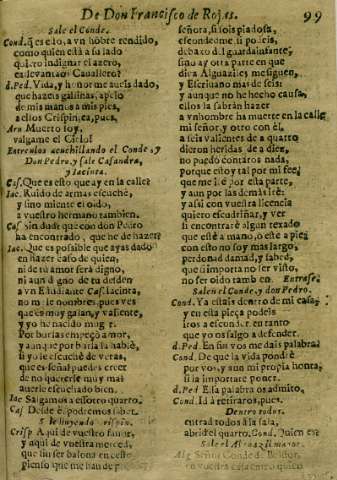 De Don Francisco de Rojas. 99
Sale el Conde.
Cond. q̃ es ello, a vn hõbre rendido,
como quien està a su lado
quiero indignar el azero,
ea leuantao Cauallero?
d.Ped. Vida, y honor me aueis dado,
que hazeis galinas, apelo
de mis manos a mis pies,
a ellos Crispin, ea, pues,
Muerto soy,
valgame el Cielo!
Entrense acuchillando el Conde, y
Don Pedro, y sale Casandra,
y Iacinta.
Cas. Que es esto que ay en la calle?
Iac. Ruido de armas escuchè,
y sino miente el oido,
a vuestro hermano tambien.
Cas. Sin duda que con don Pedro
ha encontrado, que he de hazer?
Iac. Que es possible que ayas dado
en hazer caso de quien,
ni de tu amor serà digno,
ni aun digno de tu desden
a vn Estudiante Cas. Iacinta,
no me le nombres, pues ves
que es muy galan, y valiente,
y yo he nacido muger.
Por burlas empeçò a amor,
y aunque por burla le hablè,
si yo le escuchè de veras,
que es señal puedes creer
de no quererle muy mal
auerle escuchado bien.
Iac. Salgamos a essotro quarto.
Cas. Desde è podremos saber.
Crispin.
Crisp. A qui de vuestro fauor,
y aqui de vuestra merced,
que sin ser balona en este
pienso que me han de
señora, si sois piadosa,
escondedme, si podeis,
debaxo del guardainfante,
sino ay otra parte en que
diez Alguaziles me siguen,
y Escriuano mas de seis
y aunque no he hecho causa,
ellos la sabràn hazer
a vn hombre ha muerto en la calle
mi señor, y otro con èl,
a seis valientes de a quarto
dieron heridas de a diez,
no puedo contaros nada,
porque estoy tal por mi fee,
que me iè por esta parte,
y aun por las demàs irè:
y assi con vuestra licencia
quiero escudriñar, y ver
si encontrarè algun texado
que estè a mano, o estè a pie,
con esto no soy mas largo,
perdonad damas, y sabed,
que si importa no ser visto,
no ser oido tambien. Entrase.
Sale el Conde, y don Pedro.
Cond. Ya estais dentro de mi casa,
y en esta pieça podeis
iros a esconder, en tanto
que yo os salgo a defender.
d.Ped. En fin vos me dais palabra?
Cond. De que la vida pondrè
por vos, y aun mi propia honra,
si la importare poner.
d.Ped. Essa palabra os admito.
Cond. Id à retiraros, pues.
Dentro todos.
entrad todos à la sala,
abrid el quarto. Cond. Quien es?
Sale el Alguazil mayor.
Alg. Señor Conde de
en vuestra casa entrò quien